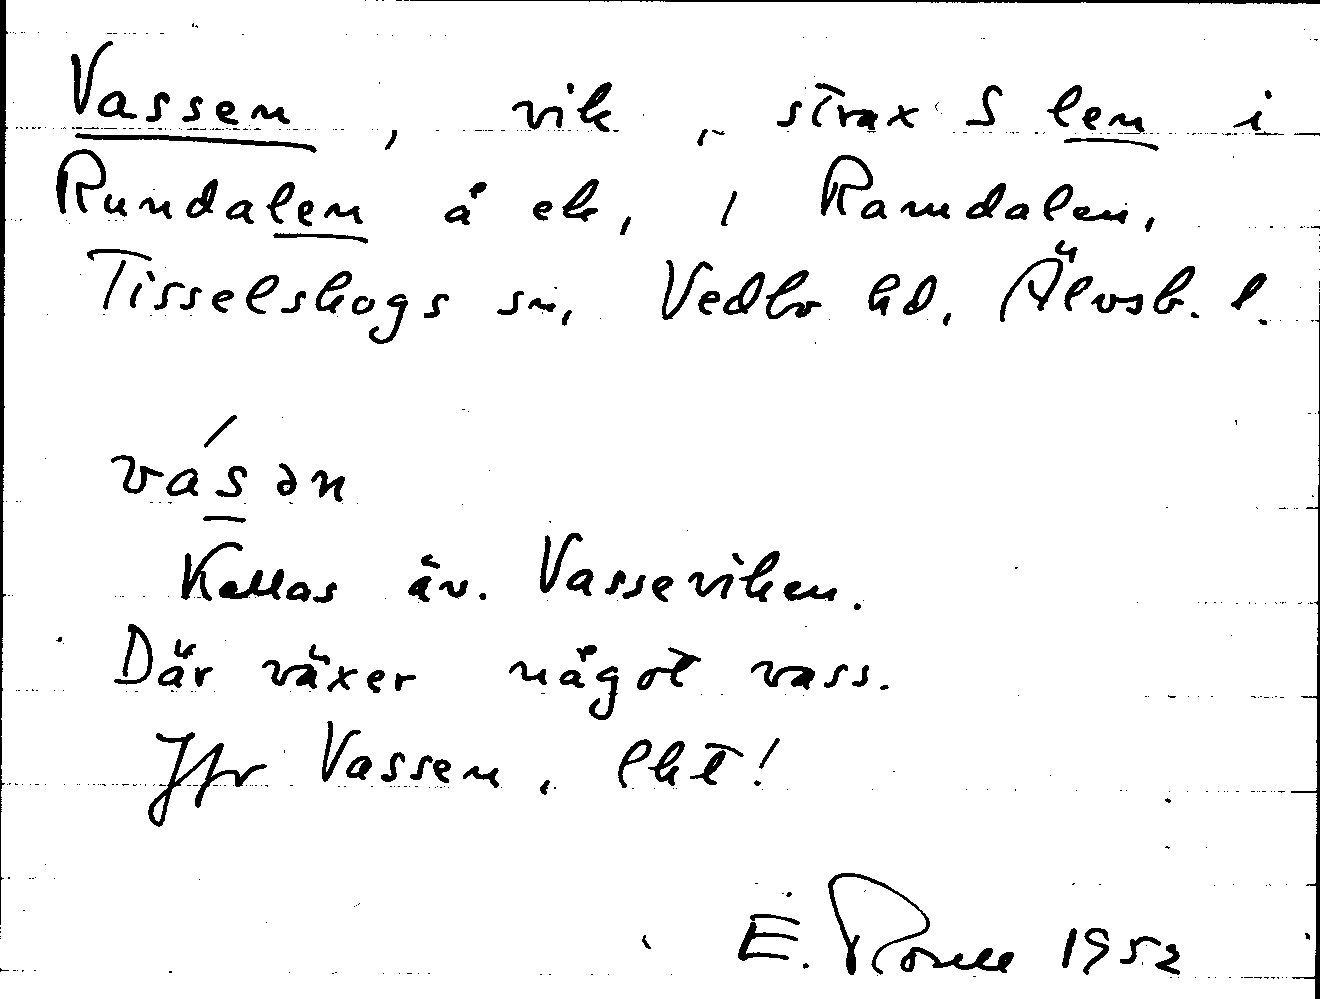 Vassen, vik, strax S len i
Rundalen å ek, i Ramdalen,
Tisselskogs sn, Vedbo hd, Älvsb. l.
vásən
Kallas äv. Vasseviken.
Där växer något vass.
Jfr Vassen, lht!
E. 1952